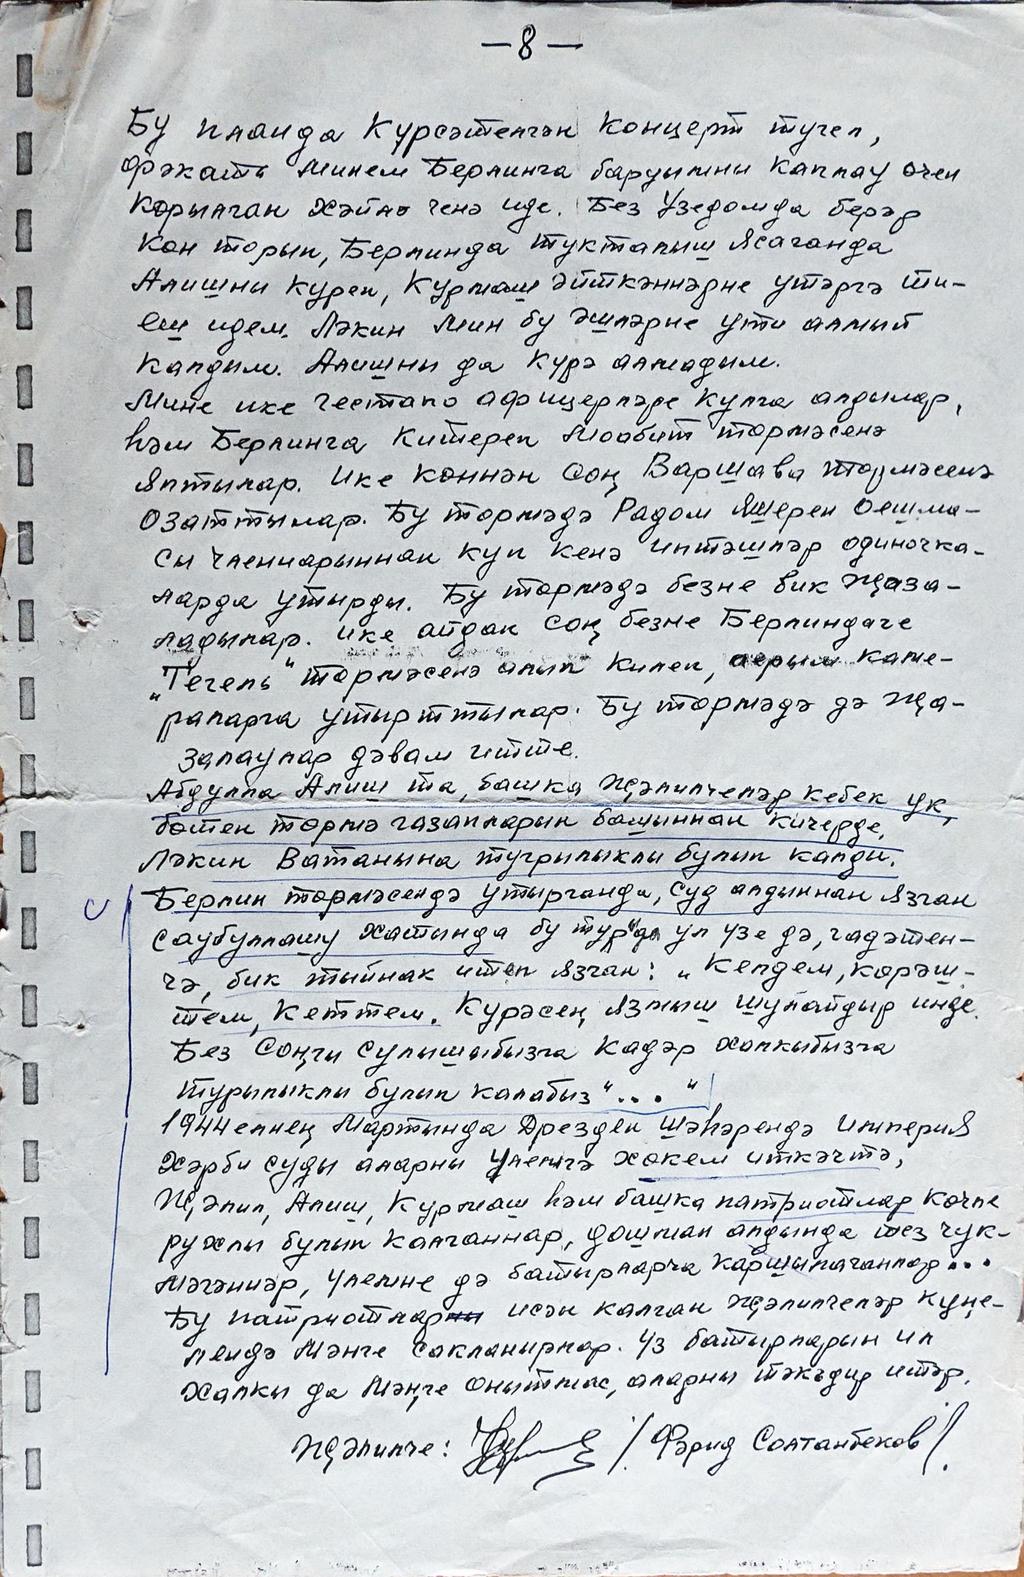 —8—
Бу планда Күрсәтелгән Концерт түгел,
фәкать минем Берлинга баруымны каплау өчен
Корылган хәйлә генә иде. Без Узедомда берәр
көн торып, Берлинда тукталыш ясаганда
Алишны күреп, Курмаш әйткәннәрне үтәргә ти-
еш идем. Ләкин мин бу эшләрне үти алмый
калдым. Алишны да күрә алмадым.
Мине ике гестапо афицерләре кулга алдылар,
һәм Берлинга китереп Моабит төрмәсенә
яптылар. Ике көннән соң Варшава төрмәсенә
озаттылар. Бу төрмәдә Радом яшерен оешма-
сы членнарыннан күп кенә иптәшләр одиночка-
ларда утырды. Бу төрмәдә безне бик җәза-
ладылар. Ике айдан соң безне Берлиндагы
„Тегель" төрмәсенә алып килеп, аерым каме-
раларга утырттылар. Бу төрмәдә дә җә-
залаулар дәвам итте.
Абдулла Алиш та, башка Җәлилчеләр кебек үк,
бөтен төрмә газапларын башыннан кичерде,
Ләкин Ватанына тугрылыклы булып калды.
Берлин төрмәсендә утырганда, суд алдыннан язган
саубуллашу хатында бу турыда ул үзе дә, гадәтен-
чә, бик тыйнак итеп язган: „Килдем, көрәш-
тем, киттем. Күрәсең язмыш шулайдыр инде.
Без соңгы сулышыбызга кадәр халкыбызга
турылыклы булып калабыз"... "
1944 елның мартында Дрезден шәһәрендә империя
хәрби суды аларны үлемгә хөкем иткәчтә,
Җәлил, Алиш, Курмаш һәм башка патриотлар көчле
рухлы булып калганнар, дошман алдында тез чүк-
мәгәннәр, үлемне дә батырларча каршылаганлар...
Бу патриотлар исән калган җәлилчеләр күңе-
лендә мәңге сакланырлар. Үз батырларын ил
халкы да мәңге онытмас, аларны тәкъдир итәр.
Җәлилче: /Фәрид Солтанбеков/.